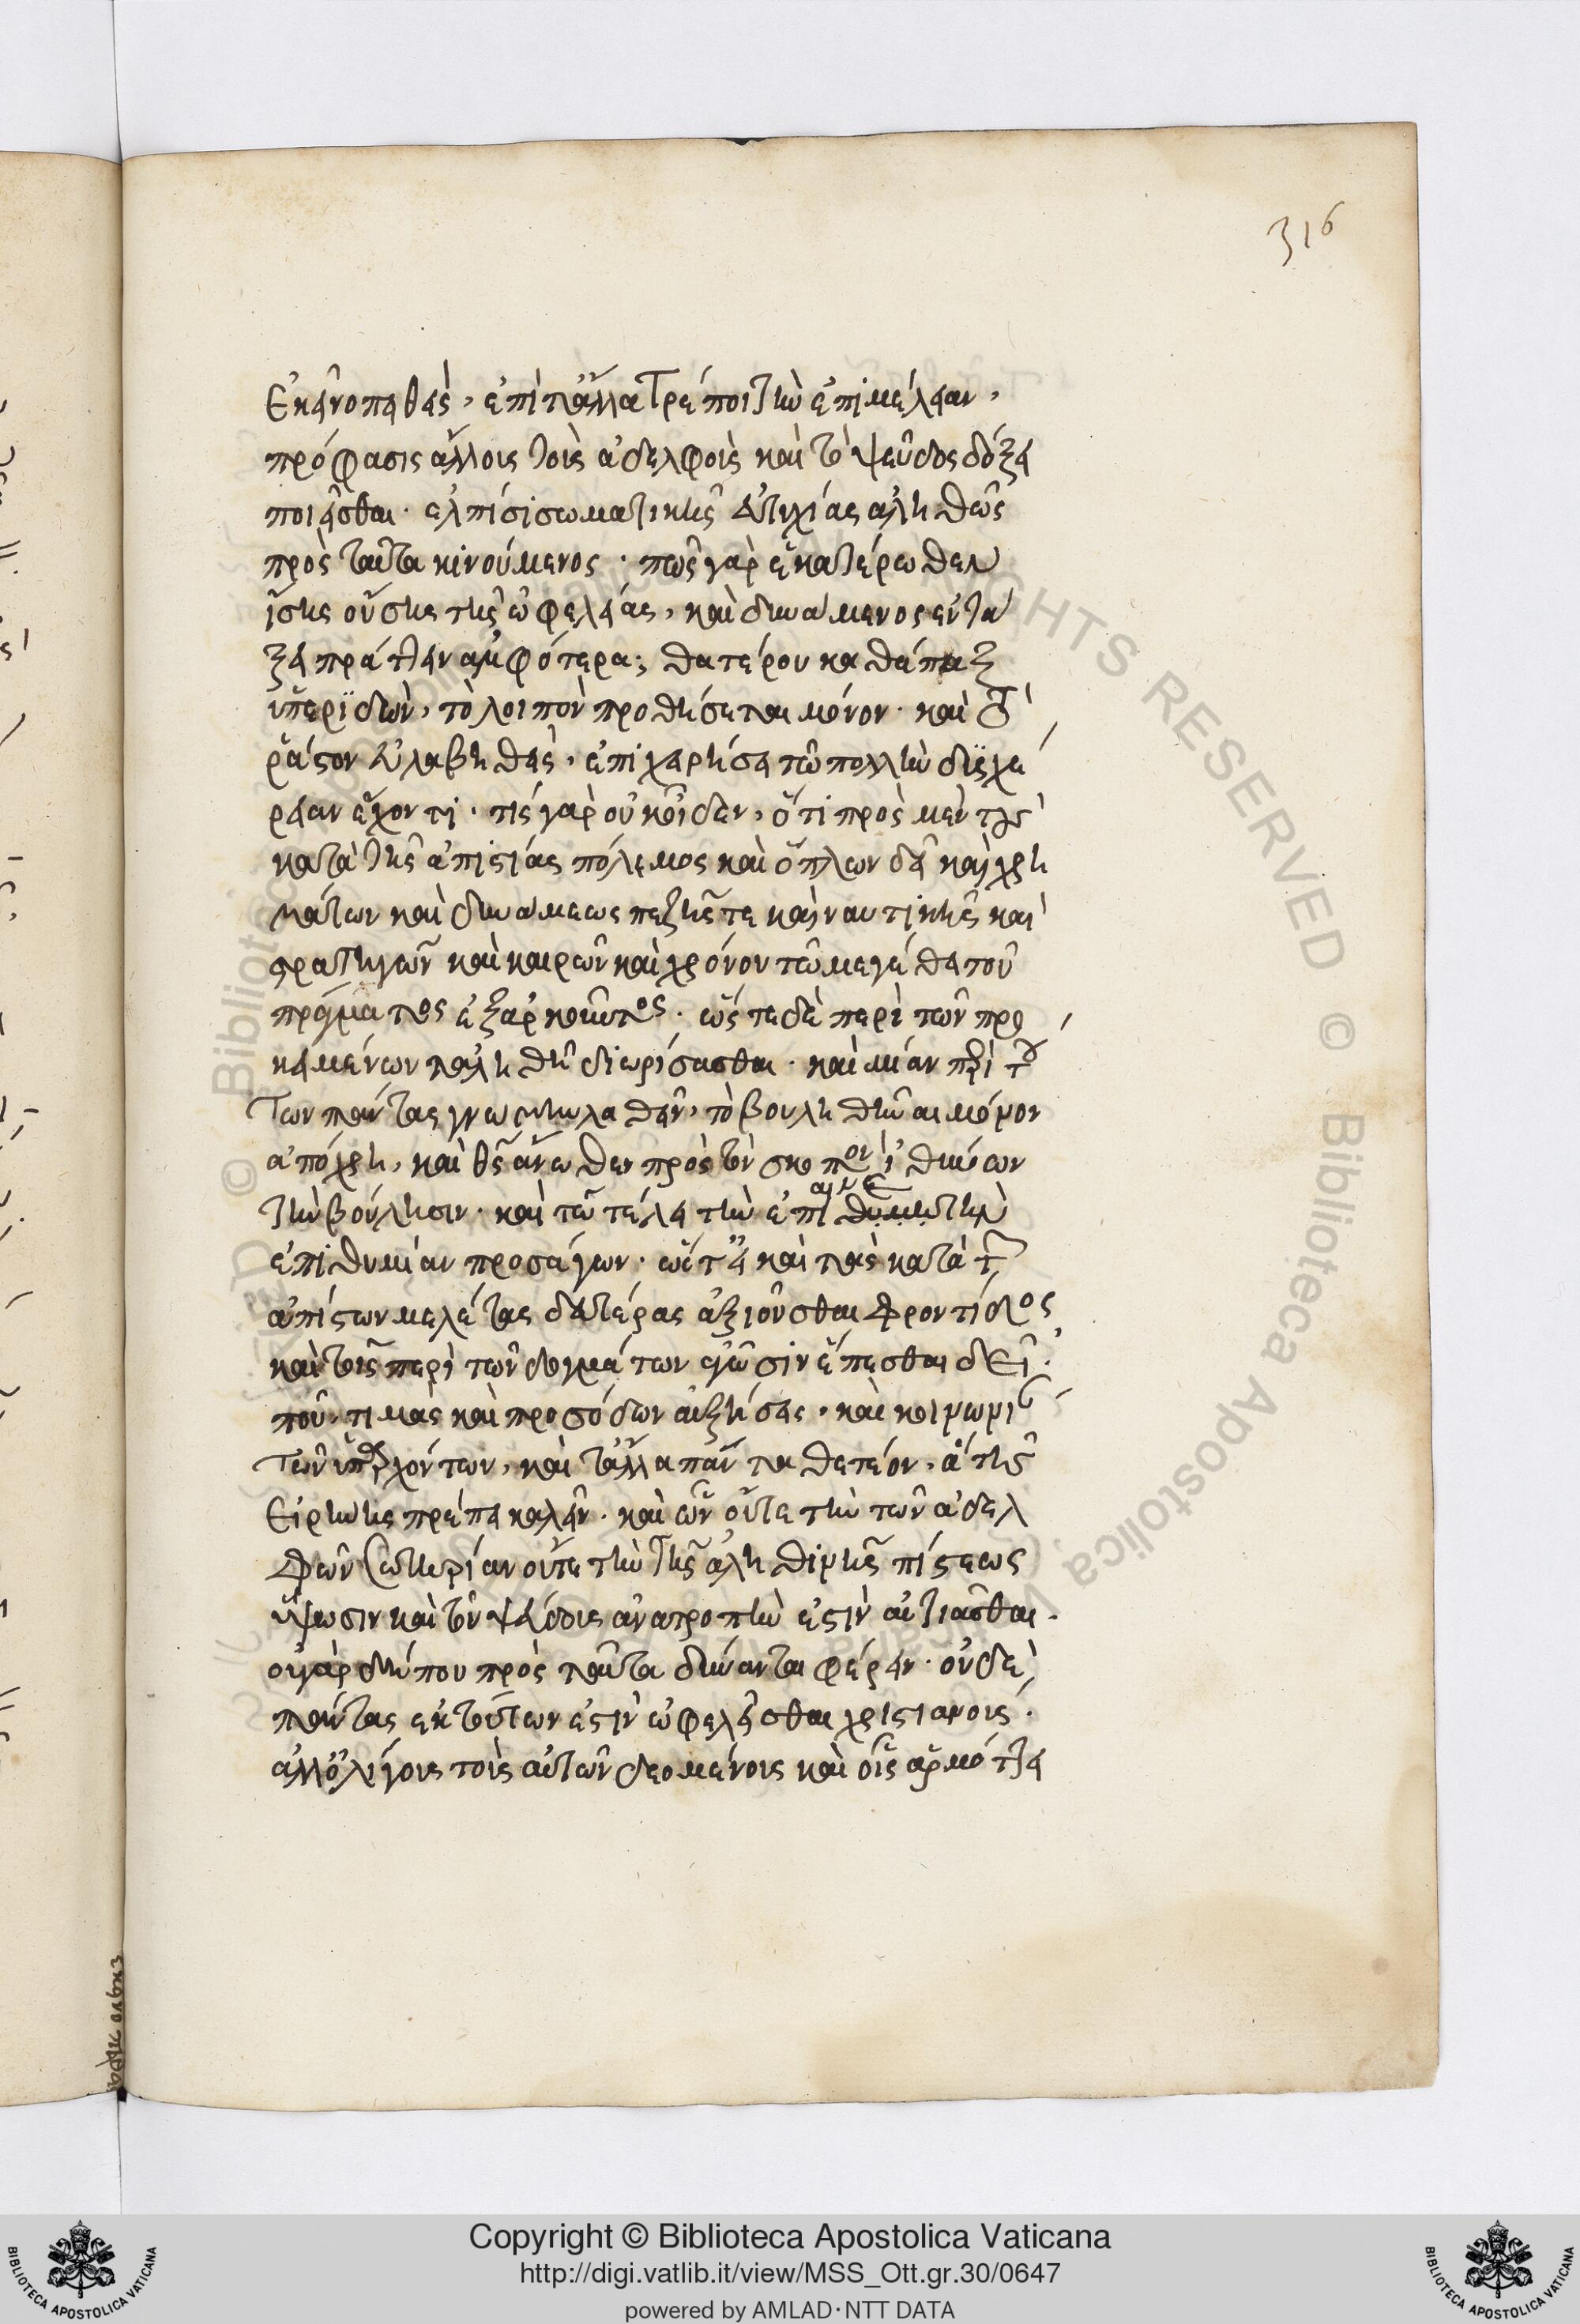 316
ἐκεῖνο παθεῖς, ἐπὶ τἄλλα τρέποι τὴν ἐπιμέλειαν,
πρόφασις ἄλλοις τοῖς ἀδελφοῖς καὶ τὸ ψεῦδος δόξει
ποιεῖσθαι· ἐλπίσι σωματικῆς εὐτυχίας ἀληθῶς
πρὸς ταῦτα κινούμενος· πῶς γὰρ ἑκατέρωθεν
ἴσης οὔσης τῆς ὠφελείας, καὶ δυνάμενος ἐν τά
ξει πράττειν ἀμφότερα; θατέρου καθάπαξ
ὑπεριδὼν, τὸ λοιπὸν προθήσεται μόνον· καὶ τὸ
ρᾷστον εὐλαβηθεὶς, ἐπιχειρήσει τῷ πολλὴν δυσχέ
ρειαν ἔχοντι· τίς γὰρ οὐκ οἶδεν, ὅτι πρὸς μὲν τοὺς
κατὰ τῆς ἀπιστίας πόλεμος καὶ ὅπλων δεῖ καὶ χρη
μάτων καὶ δυνάμεως πεζῆς τε καὶ ναυτικῆς καὶ
στρατηγῶν καὶ καιρῶν καὶ χρόνου τῷ μεγέθει τοῦ
πράγματος ἐξαρκοῦντος· ὥστε δὲ περὶ τῶν προ
κειμένων τἀληθῆ διωρίσασθαι· καὶ μίαν περὶ τού
των πάντας γνώμην λαβεῖν, τὸ βουληθῆναι μόνον
ἀπόχρη, καὶ θεὸς ἄνωθεν πρὸς τὸν σκοπὸν ἰθύνων
τὴν βούλησιν· καὶ τῷ τέλει τὴν ἐπαινετὴν
ἐπιθυμίαν προσάγων· ὥστ' εἰ καὶ τὰς κατὰ τῶν
ἀπίστων μελέτας δευτέρας ἀξιοῦσθαι φροντίδος
καὶ τοῖς περὶ τῶν δογμάτων ἀγῶσιν ἕπεσθαι δεῖ·
ποῦ τιμὰς καὶ προσόδων αὐξήσεις, καὶ κοινωνίαν
τῶν ὑπαρχόντων, καὶ τἄλλα πάντα θετέον, ἃ τῆς
εἰρήνης πρέπει καλεῖν· καὶ ὧν οὔτε τὴν τῶν ἀδελ
φῶν σωτηρίαν οὔτε τὴν τῆς ἀληθινῆς πίστεως
ὕψωσιν καὶ τοῦ ψεύδους ἀνατροπὴν ἐστὶν αἰτιᾶσθαι·
οὐ γὰρ δήπου πρὸς ταῦτα δύνανται φέρειν· οὐδὲ
πάντας ἐκ τούτων ἐστὶν ὠφελεῖσθαι χριστιανούς·
ἀλλ' ὀλίγοις τοῖς αὐτῶν δεομένοις καὶ οἷς ἁρμόττει